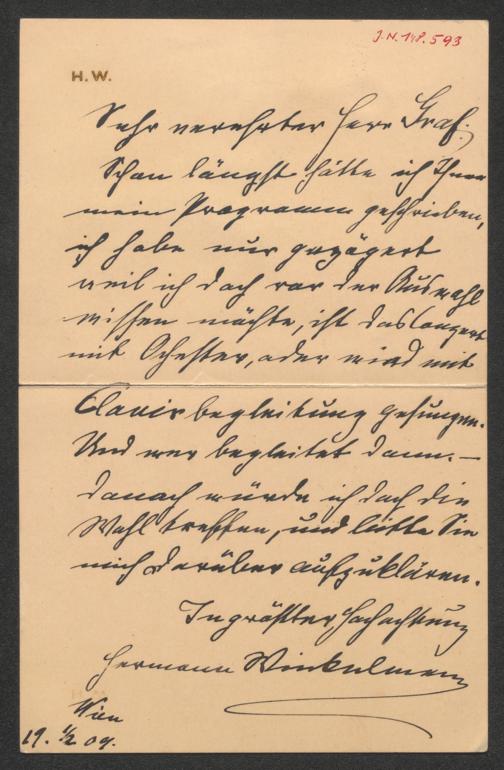 J.N. 148.593
H. W.
Sehr verehrter Herr Graf.
Schon längst hätte ich Ihnen
mein Programm geschrieben,
ich habe nur gezögert
weil ich doch vor der Auswahl
wissen möchte, ist das Conzert
mit Orchester, oder wird mit
Clavierbegleitung gesungen.
Und wer begleitet dann. —
danach würde ich doch die
Wahl treffen, und bitte Sie
mich darüber aufzuklären.
In größter Hochachtung
Hermann Winkelmann
Wien
19. 1/2 09.